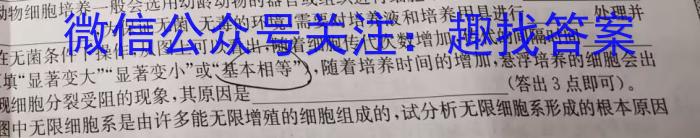 动物细胞培养一般会选用幼龄动物的器官或组织进行细胞
无菌、无毒的环境,需要对培养液和培养用具进行 处理并
微信公众号关注:趣找答案
在无菌条件 操作 随着细 次数增加
填“显著变大”“显著变小”或“基本相等”),随着培养时间的增加,悬浮培养的细胞会出
现细胞分裂受阻的现象,其原因是 (答出3点即可)。
图中无限细胞系是由许多能无限增殖的细胞组成的,试分析无限细胞系形成的根本原因